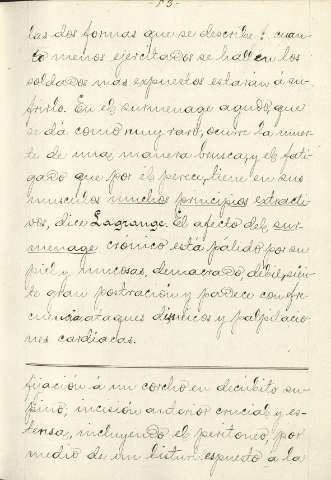 - 53 -
las dos formas que se describe! cuan-
to menos ejercitados se hallen los
soldados mas expuestos estarán á su-
frirlo. En el surmenage agudo, que
se dá como muy raro, ocurre la muer-
te de una manera brusca, y el fati-
gado que por él perece, tiene en sus
musculos muchos principios extracti-
vos, dice Lagrange. El afecto del sur-
menage cronico está pálido por su
piel y mucosas, demacrado, debil, sien-
te gran postración y padece con fre-
cuencia ataques disneicos y palpitacio-
nes cardiacas.
fijación á un corcho en decúbito su-
pino; incisión anterior crucial y ex-
tensa, incluyendo el peritoneo, por
medio de un bisturi expuesto á la